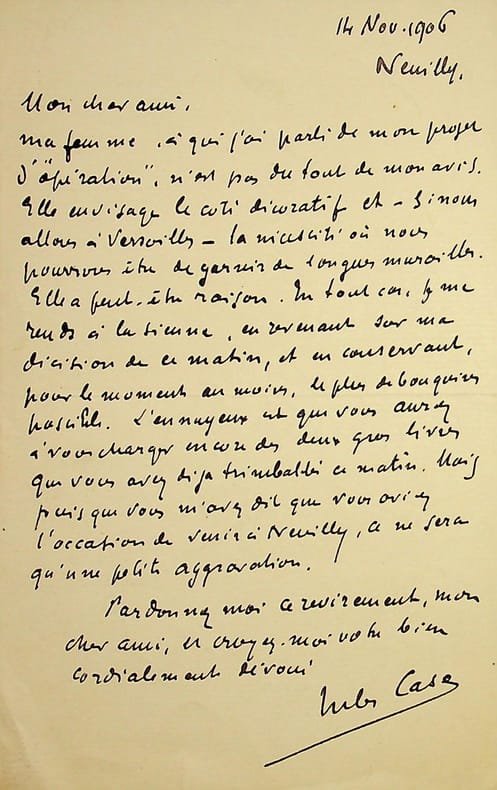 14 Nov. 1906
Neuilly,
Mon cher ami,
ma femme, à qui j'ai parlé de mon projet
d'"opération", n'est pas du tout de mon avis.
Elle envisage le côté décoratif et – si nous
allons à Versailles – la nécessité où nous
pourrons être de garnir de longues murailles.
Elle a peut-être raison. En tout cas, je me
rends à la sienne, en revenant sur ma
décision de ce matin, et en conservant,
pour le moment au moins, le plus de bouquins
possible. L'ennuyeux est que vous aurez
à vous charger encore des deux gros livres
que vous avez déjà trimballés ce matin. Mais
puisque vous m'avez dit que vous aviez
l'occasion de venir à Neuilly, ce ne sera
qu'une petite aggravation.
Pardonnez moi ce revirement, mon
cher ami, et croyez-moi votre bien
cordialement dévoué
Jules Case